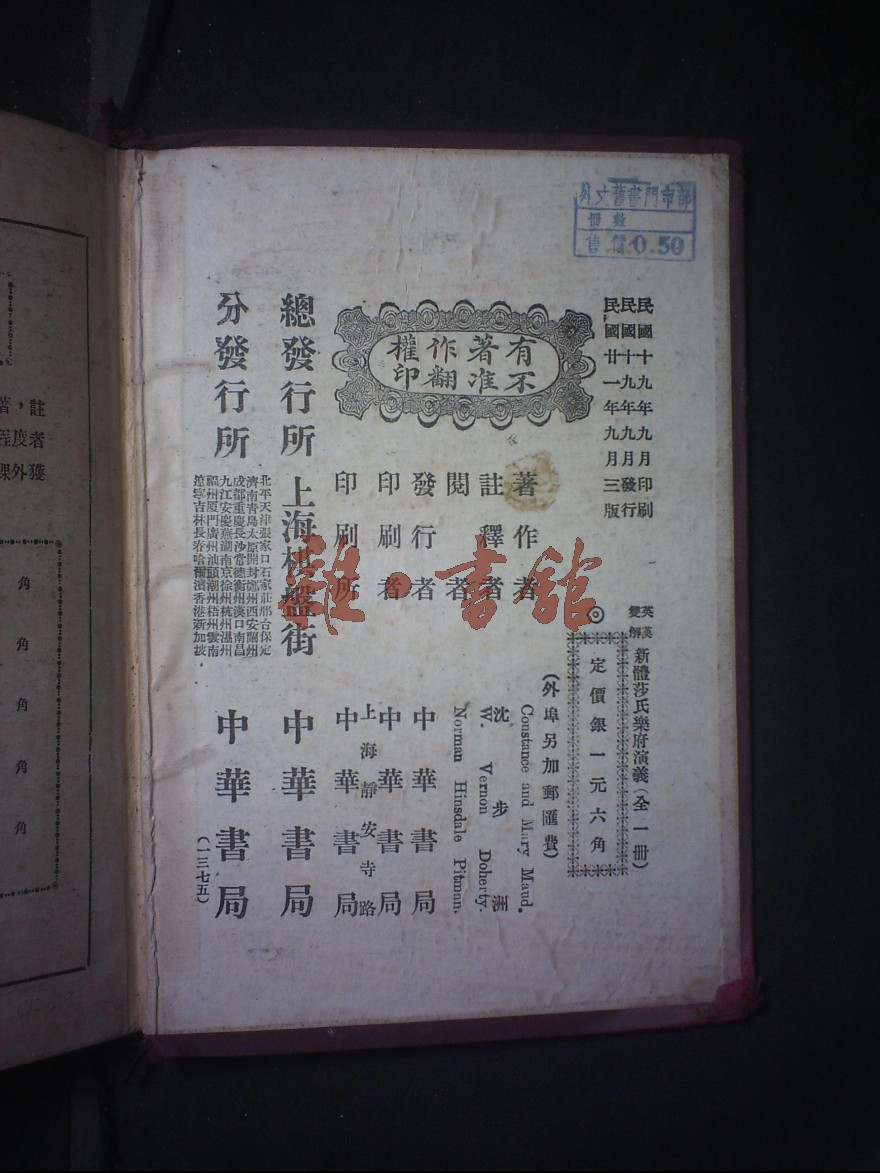 外文舊書門市部
冊數
售價0.50
民國十九年九月印刷
民國十九年九月發行
民國廿一年九月三版
英漢雙解 新體莎氏樂府演義(全一冊)
◎定價銀一元六角
(外埠另加郵匯費)
有著作權
不准翻印
著作者 Constance and Mary Maud.
註釋者 沈步洲
W. Vernon Doherty.
閱者 Norman Hinsdale Pitman.
發行者 中華書局
印刷者 中華書局
上海靜安寺路
印刷所 中華書局
總發行所 上海棋盤街 中華書局
北平天津張家口石家莊邢台保定
濟南青島太原開封鄭州西安蘭州
成都重慶長沙常德衡州漢口南昌
九江安慶蕪湖南京徐州杭州溫州
福州厦門廣州汕頭潮州梧州雲南
遼寧吉林長春哈爾濱香港新加坡
分發行所 中華書局
(一三七五)
雜·書館
著，註
程度者
課外獲
角
角
角
角
角